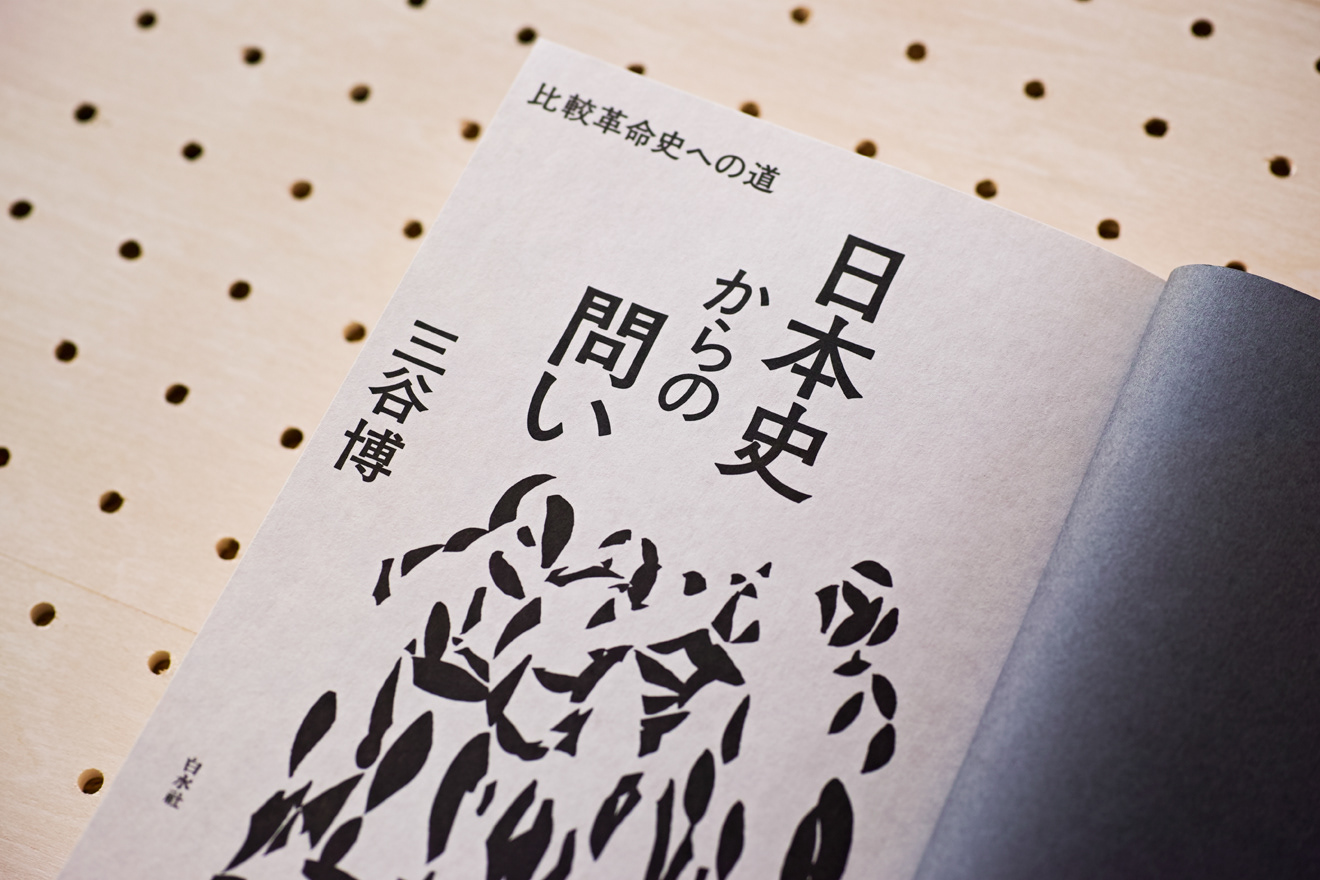 比較革命史への道
日本史
からの
問い
三谷博
白水社